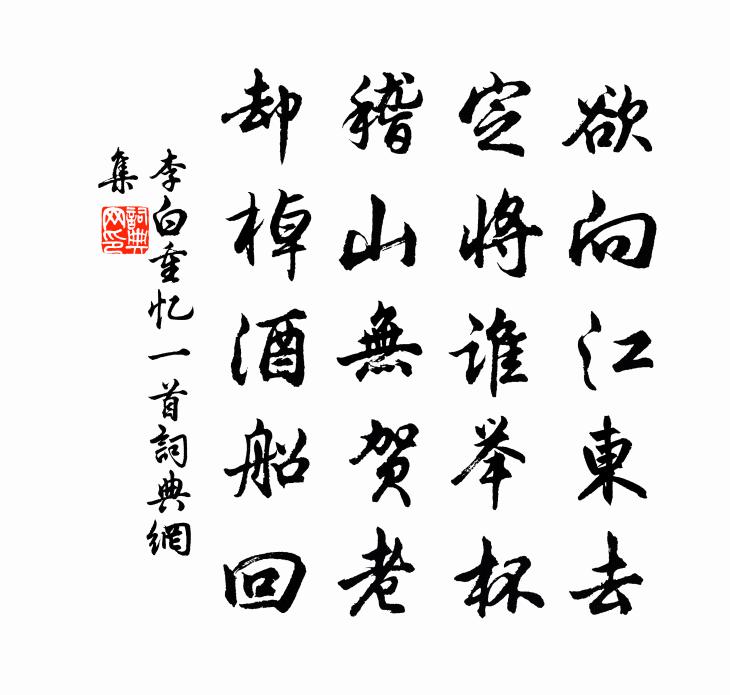 欲向江東去
定将谁举杯
稽山無贺老
却棹酒船回
李白重忆一首詞典網
集
詞典
网印